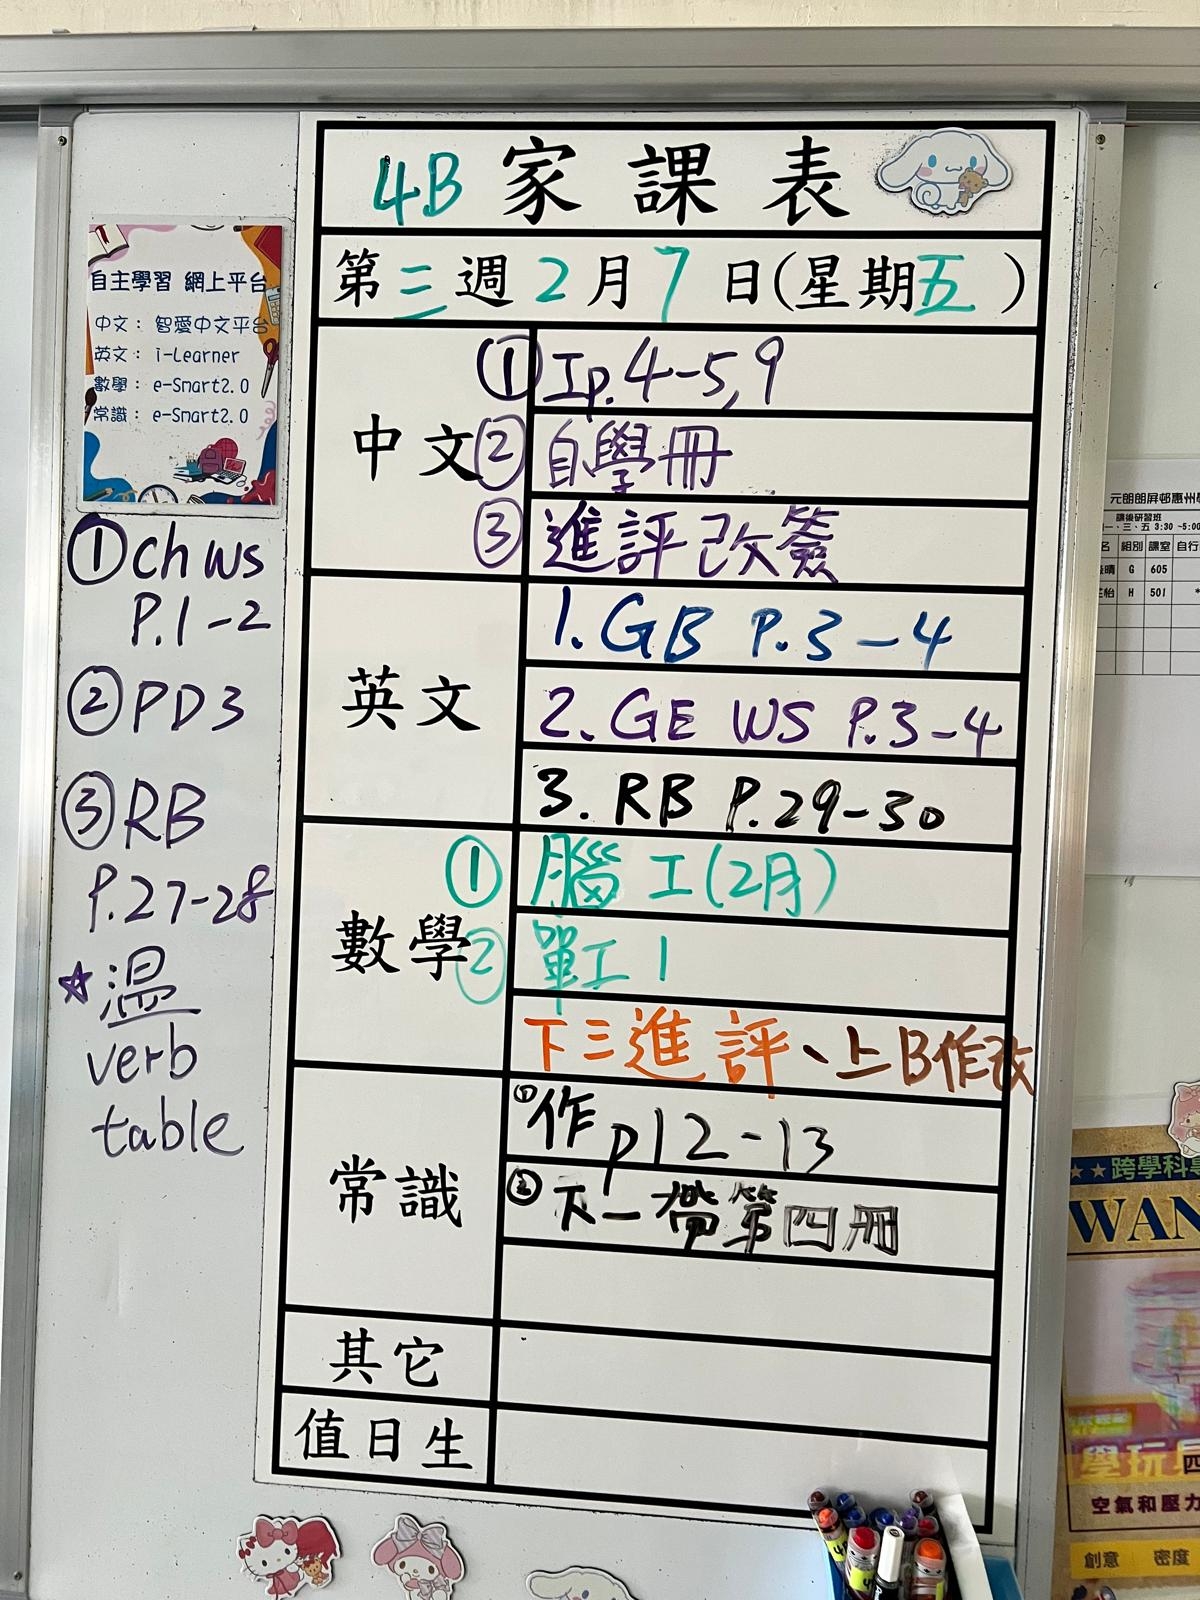 4B 家課表
第三週2月7日(星期五)
中文
① Ip.4-5,9
② 自學冊
③ 進評改簽
英文
1. GB P.3-4
2. GE WS P.3-4
3. RB P.29-30
數學
① 腦工(2月)
② 單工1
下三進評、上B作改
常識
① 作p12-13
② 下一帶第四冊
其它
值日生
自主學習 網上平台
中文: 智愛中文平台
英文: i-Learner
數學: e-Smart2.0
常識: e-Smart2.0
① Ch WS
P.1-2
② PD3
③ RB
P.27-28
☆溫
verb
table
元朗朗屏邨惠州
課後研習班
一、三、五 3:30 ~5:00
名 組別 課室 自行
晴 G 605
怡 H 501 *
★★跨學科
WAN
學玩
空氣和壓力
創意 密度